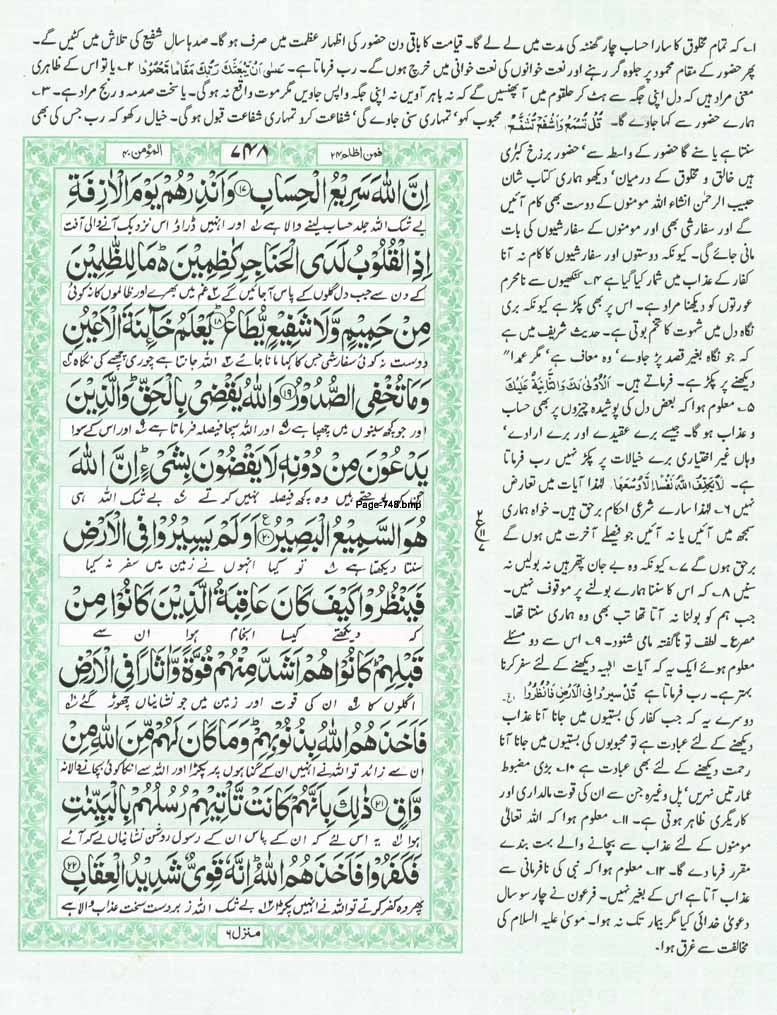 ۱۔ کہ تمام مخلوق کا سارا حساب چار گھنٹہ کی مدت میں لے لے گا۔ قیامت کا باقی دن حضور کی اظہار عظمت میں صرف ہو گا۔ صدہا سال شفیع کی تلاش میں کٹیں گے۔
پھر حضور کے مقام محمود پر جلوہ گر رہنے اور نعت خوانوں کی نعت خوانی میں خرچ ہوں گے۔ رب فرماتا ہے۔ عَسٰۤى اَنْ يَّبْعَثَكَ رَبُّكَ مَقَامًا مَّحْمُوْدًا ۲۔ یا تو اس کے ظاہری
معنی مراد ہیں کہ دل اپنی جگہ سے ہٹ کر حلقوم میں آ پھنسیں گے کہ نہ باہر آویں نہ اپنی جگہ واپس جاویں مگر موت واقع نہ ہو گی۔ یا سخت صدمہ و رنج مراد ہے۔ ۳۔
ہمارے حضور سے کہا جاوے گا۔ قُلْ تُسْمَعْ وَاشْفَعْ تُشَفَّعْ محبوب کہو' تمہاری سنی جاوے گی' شفاعت کرو تمہاری شفاعت قبول ہو گی۔ خیال رکھو کہ رب جس کی بھی
سنتا ہے یا سنے گا حضور کے واسطہ سے' حضور برزخ کبرٰی
ہیں خالق و مخلوق کے درمیان' دیکھو ہماری کتاب شان
حبیب الرحمٰن انشاء اللہ مومنوں کے دوست بھی کام آئیں
گے اور سفارشی بھی اور مومنوں کے سفارشیوں کی بات
مانی جائے گی۔ کیونکہ دوستوں اور سفارشیوں کا کام نہ آنا
کفار کے عذاب میں شمار کیا گیا ہے ۴۔ کنکھیوں سے نامحرم
عورتوں کو دیکھنا مراد ہے۔ اس پر بھی پکڑ ہے کیونکہ بری
نگاہ دل میں شہوت کا تخم بوتی ہے۔ حدیث شریف میں ہے
کہ جو نگاہ بغیر قصد پڑ جاوے' وہ معاف ہے' مگر عمداً"
دیکھنے پر پکڑ ہے۔ فرماتے ہیں۔ اَلْاُوْلٰى لَكَ وَالثَّانِيَةُ عَلَيْكَ
۵۔ معلوم ہوا کہ بعض دل کی پوشیدہ چیزوں پر بھی حساب
و عذاب ہو گا۔ جیسے برے عقیدے اور برے ارادے'
وہاں غیر اختیاری برے خیالات پر پکڑ نہیں رب فرماتا
ہے۔ لَا يُكَلِّفُ اللّٰهُ نَفْسًا اِلَّا وُسْعَهَا لہٰذا آیات میں تعارض
نہیں ۶۔ لہٰذا سارے شرعی احکام برحق ہیں۔ خواہ ہماری
سمجھ میں آئیں یا نہ آئیں جو فیصلے آخرت میں ہوں گے
برحق ہوں گے ۷۔ کیونکہ وہ بے جان پتھر ہیں نہ بولیں نہ
سنیں ۸۔ کہ اس کا سنتا ہمارے بولنے پر موقوف نہیں۔
جب ہم کو بولنا نہ آتا تھا تب بھی وہ ہماری سنتا تھا۔
مصرع۔ لطف تو ناگفتہ مامی شنود۔ ۹۔ اس سے دو مسئلے
معلوم ہوئے ایک یہ کہ آیات الٰہیہ دیکھنے کے لئے سفر کرنا
بہتر ہے۔ رب فرماتا ہے قُلْ سِيْرُوْا فِي الْاَرْضِ فَانْظُرُوْا الخ۔
دوسرے یہ کہ جب کفار کی بستیوں میں جانا آنا عذاب
دیکھنے کے لئے عبادت ہے تو محبوبوں کی بستیوں میں جانا آنا
رحمت دیکھنے کے لئے بھی عبادت ہے ۱۰۔ بڑی مضبوط
عمارتیں نہریں' پل وغیرہ جن سے ان کی قوت مالداری اور
کاریگری ظاہر ہوتی ہے۔ ۱۱۔ معلوم ہوا کہ اللہ تعالٰی
مومنوں کے لئے عذاب سے بچانے والے بہت بندے
مقرر فرما دے گا۔ ۱۲۔ معلوم ہوا کہ نبی کی نافرمانی سے
عذاب آتا ہے اس کے بغیر نہیں۔ فرعون نے چار سو سال
دعویٰ خدائی کیا مگر بیمار تک نہ ہوا۔ موسیٰ علیہ السلام کی
مخالفت سے غرق ہوا۔
فمن اظلم ۲۴
۷۴۸
المؤمن ۴۰
اِنَّ اللّٰهَ سَرِيْعُ الْحِسَابِ ۱۷ وَاَنْذِرْهُمْ يَوْمَ الْاٰزِفَةِ
بے شک اللہ جلد حساب لینے والا ہے ۱ اور انہیں ڈراؤ اس نزدیک آنے والی آفت
اِذِ الْقُلُوْبُ لَدَى الْحَنَاجِرِ كٰظِمِيْنَ ۬ مَا لِلظّٰلِمِيْنَ
کے دن سے جب دل گلوں کے پاس آ جائیں گے ۲ غم میں بھرے اور ظالموں کا نہ کوئی
مِنْ حَمِيْمٍ وَّلَا شَفِيْعٍ يُّطَاعُ ۱۸ يَعْلَمُ خَآىِٕنَةَ الْاَعْيُنِ
دوست نہ کوئی سفارشی جس کا کہا مانا جائے ۳ اللہ جانتا ہے چوری چھپے کی نگاہ ۴
وَمَا تُخْفِي الصُّدُوْرُ ۱۹ وَاللّٰهُ يَقْضِيْ بِالْحَقِّ ؕ وَالَّذِيْنَ
اور جو کچھ سینوں میں چھپا ہے ۵ اور اللہ سچا فیصلہ فرماتا ہے ۶ اور اس کے سوا
يَدْعُوْنَ مِنْ دُوْنِهٖ لَا يَقْضُوْنَ بِشَيْءٍ ؕ اِنَّ اللّٰهَ
جن کو پوجتے ہیں وہ کچھ فیصلہ نہیں کرتے ۷ بے شک اللہ ہی
Page-748.bmp
هُوَ السَّمِيْعُ الْبَصِيْرُ ۲۰ اَوَلَمْ يَسِيْرُوْا فِي الْاَرْضِ
سنتا دیکھتا ہے ۸ تو کیا انہوں نے زمین میں سفر نہ کیا
فَيَنْظُرُوْا كَيْفَ كَانَ عَاقِبَةُ الَّذِيْنَ كَانُوْا مِنْ
کہ دیکھتے کیسا انجام ہوا ان سے
قَبْلِهِمْ ؕ كَانُوْا هُمْ اَشَدَّ مِنْهُمْ قُوَّةً وَّاٰثَارًا فِي الْاَرْضِ
اگلوں کا ۹ ان کی قوت اور زمین میں جو نشانیاں چھوڑ گئے ۱۰
فَاَخَذَهُمُ اللّٰهُ بِذُنُوْبِهِمْ ؕ وَمَا كَانَ لَهُمْ مِّنَ اللّٰهِ مِنْ
ان سے زائد تو اللہ نے انہیں ان کے گناہوں پر پکڑا اور اللہ سے ان کا کوئی بچانے والا نہ
وَّاقٍ ۲۱ ذٰلِكَ بِاَنَّهُمْ كَانَتْ تَّاْتِيْهِمْ رُسُلُهُمْ بِالْبَيِّنٰتِ
ہوا ۱۱ یہ اس لئے کہ ان کے پاس ان کے رسول روشن نشانیاں لے کر آئے
فَكَفَرُوْا فَاَخَذَهُمُ اللّٰهُ ؕ اِنَّهٗ قَوِيٌّ شَدِيْدُ الْعِقَابِ ۲۲
پھر وہ کفر کرتے تو اللہ نے انہیں پکڑا ۱۲ بے شک اللہ زبردست سخت عذاب والا ہے
منزل ۶